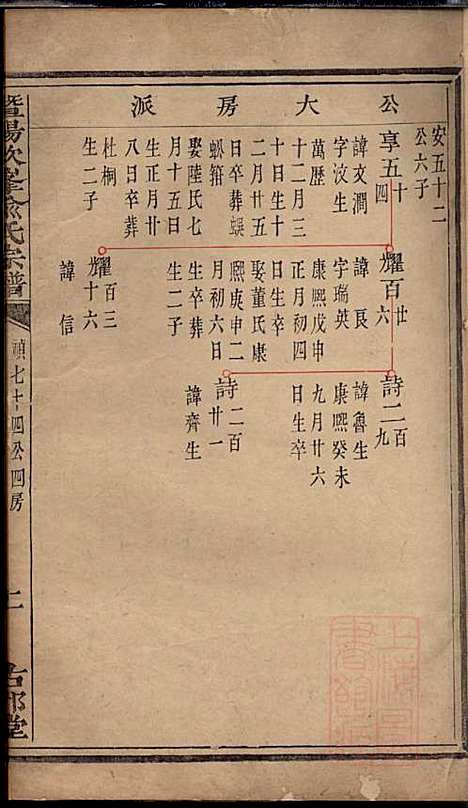 公大房派
安五十二
公六子
享五十四
諱文澗
字汶生
萬歷
十二月三
十日生十
二月廿五
日卒葬蜈
蚣箝
娶陸氏七
月十五日
生正月廿
八日卒葬
杜桐
生二子
耀百廿六
諱良
字瑞英
康熙戊申
正月初四
日生卒
娶董氏康
熙庚申二
月初六日
生卒葬
生二子
耀百三十六
諱信
詩二百九
諱魯生
康熙癸未
九月廿六
日生卒
詩二百廿一
諱齊生
暨陽次峯俞氏宗譜
禎七十四公四房
二